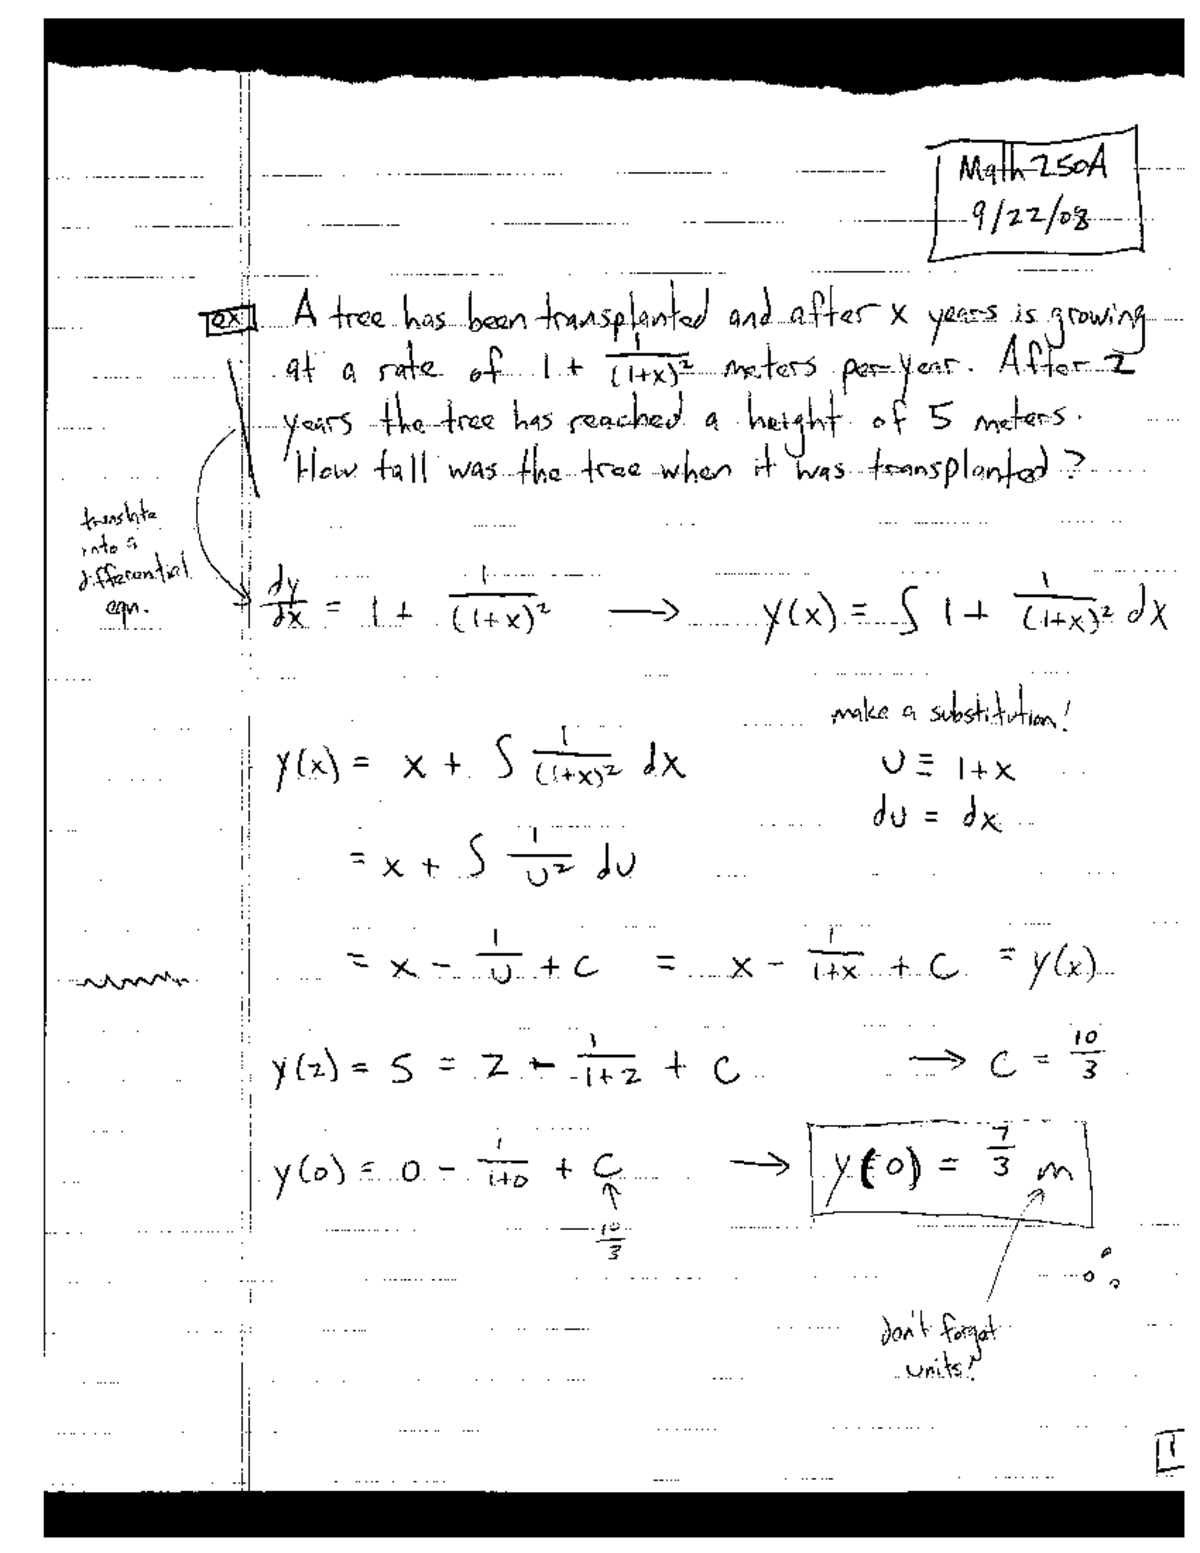 Math 250A
9/22/08
ex A tree has been transplanted and after x years is growing
at a rate of 1 + 1/(1+x)² meters per year. After 2
years the tree has reached a height of 5 meters.
How tall was the tree when it was transplanted?
translate
into a
differential
eqn.
dy/dx = 1 + 1/(1+x)² → y(x) = ∫ 1 + 1/(1+x)² dx
make a substitution!
y(x) = x + ∫ 1/(1+x)² dx
u ≡ 1+x
du = dx
= x + ∫ 1/u² du
= x - 1/u + C = x - 1/(1+x) + C = y(x)
y(2) = 5 = 2 - 1/(1+2) + C → C = 10/3
y(0) = 0 - 1/(1+0) + C → y(0) = 7/3 m
↑
10/3
don't forget
units!
1